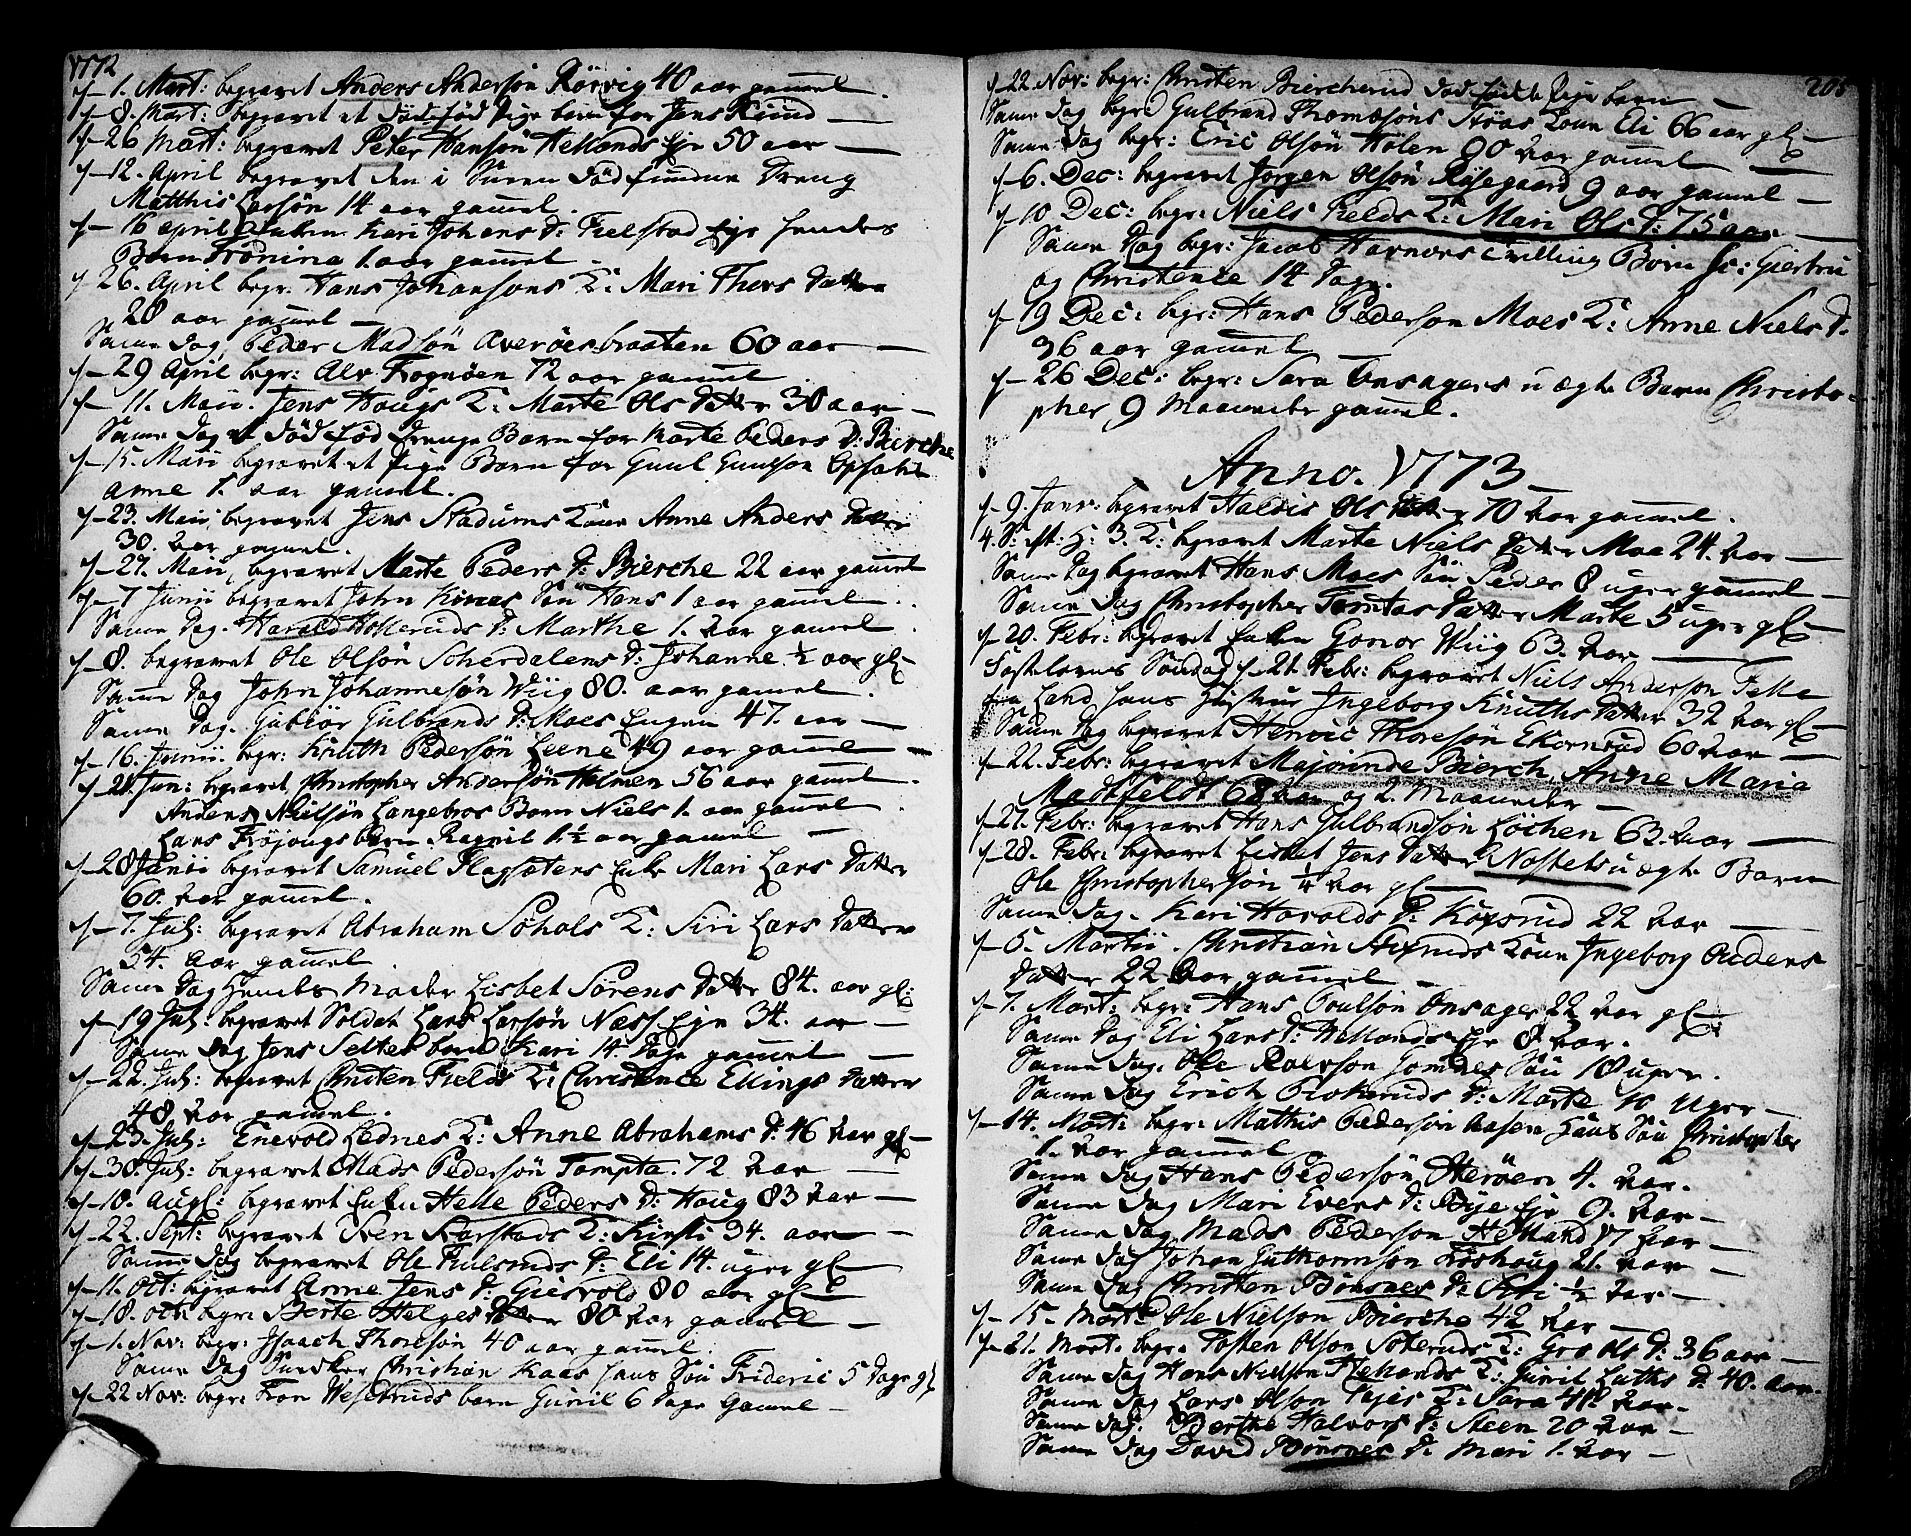 1772
d— 1. Mart: begravet Anders Andersøn Rørvig 40 aar gamel.
d— 8. Mart: begravet et dødfød Pige barn for Jens —
d— 26 Mart: begravet Peter Hansøn Hellands Eje 50 aar —
d— 12. April begravet den i død fundne Dreng
Matthis Larsøn 14 aar gamel
d— 16 April Kari Johans D: Fielstad Eje hendes
Barn 1. aar gamel —
d— 26. April begr. Hans Johansøns K: Mari Thors datter
28 aar gamel —
Same dag Peder Madsøn Averøesbraaten 60 aar —
d— 29 April begr: Alv Frognøen 72 aar gamel
d— 11. Maii. Jens Hougs K: Marte Ols datter 30 aar —
Same dag et dødfød drenge Barn for Marte Peders D: Bierche
d— 15. Maii begravet et Pige Barn for Gunl Opsahl
Anne 1. aar gamel.
d— 23. Maii begravet Jens Stadums Kone Anne Anders datter
30. aar gamel.
d— 27. Maii, begravet Marte Peders D: Bierche 22 aar gamel
d— 7 Junii begravet John Søn Hans 1 aar gamel.
Same dag. Harald Holleruds D: Marthe 1. aar gamel.
d— 8. begravet Ole Olsøn Scherdalens D: Johanne ½ aar gl—
Same dag John Johannesøn Wiig 80. aar gamel.
Same dag. Gubiør Gulbrands D: Moes Eugen 47. aar —
d— 16. Junii. begr: Knuth Pedersøn Leene 49 aar gamel —
d— 21. Jun: begravet Christopher Andersøn Holmen 56 aar gamel.
Anders Nielsøn Langebros Barn Niels 1. aar gamel
Lars barn. Ragnil 1.½ aar gamel —
d— 28 Junii begravet Samuel Flagsætens Enke Mari Lars datter
60. aar gamel.
d— 7. Jul: begravet Abraham Søhols K: Siri Lars datter
54. aar gamel
Same dag hendes Moder Lisbet Sørens datter 84. aar gl:
d— 19 Jul: begravet Soldat Lars Larsøn Næss Eje 34. aar —
Same dag Jens Seltes barn Kari 14. dage gamel —
d— 22. Jul: begravet Christen Fields K: Christence Ellings datter
48 aar gamel.
d— 25. Jul: Enevold Lednes K: Anne Abrahams D: 46 aar gl—
d— 30. Jul: begravet Mads Pedersøn Tompta. 72 aar —
d— 10. Aug: begravet Enken Helle Peders D: Houg 83 aar —
d— 22. Sept: begravet Sven Karstads K: Kirsti 34. aar —
Same dag begravet Ole D: Eli 14. uger gl—
d— 11. Oct: begravet Anne Jens D: Giesvold 80 aar gl—
d— 18. Oct: begr: Berte Helges datter 80 aar gamel —
d— 1. Nov: begr: Isaach Thoresøn 40 aar gamel.
Same dag Christian Kaas hans Søn Frideric 5 dage gl
d— 22 Nov: begr: Tron Weseteruds barn Gunil 6 dage gamel —
205
d— 22. Nov: begr: Christen Biercherud dødfødte Pige barn —
Same dag begr: Gulbrand Thomæsøns Støas Kone Eli 66 aar gl—
Same dag begr: Eric Olsøn Holen 80 aar gamel —
d— 6. Dec: begravet Jørgen Olsøn Risegaard 9 aar gamel —
d— 10 Dec: begr: Niels Fields K: Mari Ols D: 75 aar —
Same dag begr: Jacob Tvilling Børn sc: Giertru
og Christence 14 dage.
d— 19 Dec: begr: Hans Pedersøn Moes K: Anne Niels D.
36 aar gamel —
d— 26 Dec: begr: Sara Onsagers uægte Barn Christo-
pher 9 Maaneder gamel.
Anno. 1773—
d— 9. Janr: begravet Halvis Ols datter 70 aar gamel.
4. S: ft: H: 3. K: begravet Marte Niels datter Moe 24. aar —
Same dag begravet Hans Moes Søn Peder 8 uger gamel —
Same dag Christopher Tomtas datter Marte 5 uger gl—
d— 20. Febr: begravet Enken Gonor Wiig 63. aar —
Fastelavns Søndag d. 21. Febr: begravet Niels Andersøn Felle
fra Land hans Hustrue Ingeborg Knuths datter 32 aar gl—
Same dag begravet Thoresøn Ekornrud 60 aar —
d— 22. Febr: begravet Majorinde Bierch Anne Maria
Madtfeldt 68 aar og 2. Maaneder —
d— 27. Febr: begravet Hans Gulbrandsøn Løchen 63. aar —
d— 28. Febr: begravet Lisbet Jens datter Nostets uægte Barn
Ole Christophersøn ¼ aar gl—
Same dag. Kari Harolds D: Kopsrud 22 aar —
d— 5. Martii. Christian Kone Ingeborg Audens
datter 22 aar gamel —
d— 7. Mart: begr: Hans Poulsøn Onsager 22 aar gl—
Same dag Eli Lars D: Hellands Eje 8 aar.
Same dag. Ole Søn 18 uger.
Same dag Erich D: Marte 10 Uger —
d— 14. Mart: begr: Mathis Pedersøn Aasen hans Søn Christopher
1. aar gamel
Same dag Hans Pedersøn Averøen 4. aar.
Same dag Mari Evens D: Eje 9. aar —
Same dag Mads Pedersøn Helland 17 aar —
Same dag Johan Guthormsøn 21. aar —
Same dag Christen Bønsnes D: Siri ½ aar —
d— 15. Mart: Ole Nielsøn Bierche 42 aar —
d— 21. Mart. begr. Tosten Olsøn Søkeruds K: Gro Ols D: 36 aar —
Same dag Hans Nielsøn Hellands K: Gunil Luths D. 40. aar.
Same dag Lars Olsøn K: Sara 41. aar.
Same dag. Berthe Halvors D: Steen 20 aar —
Same dag David Bønsnes D: Mari 1. aar —